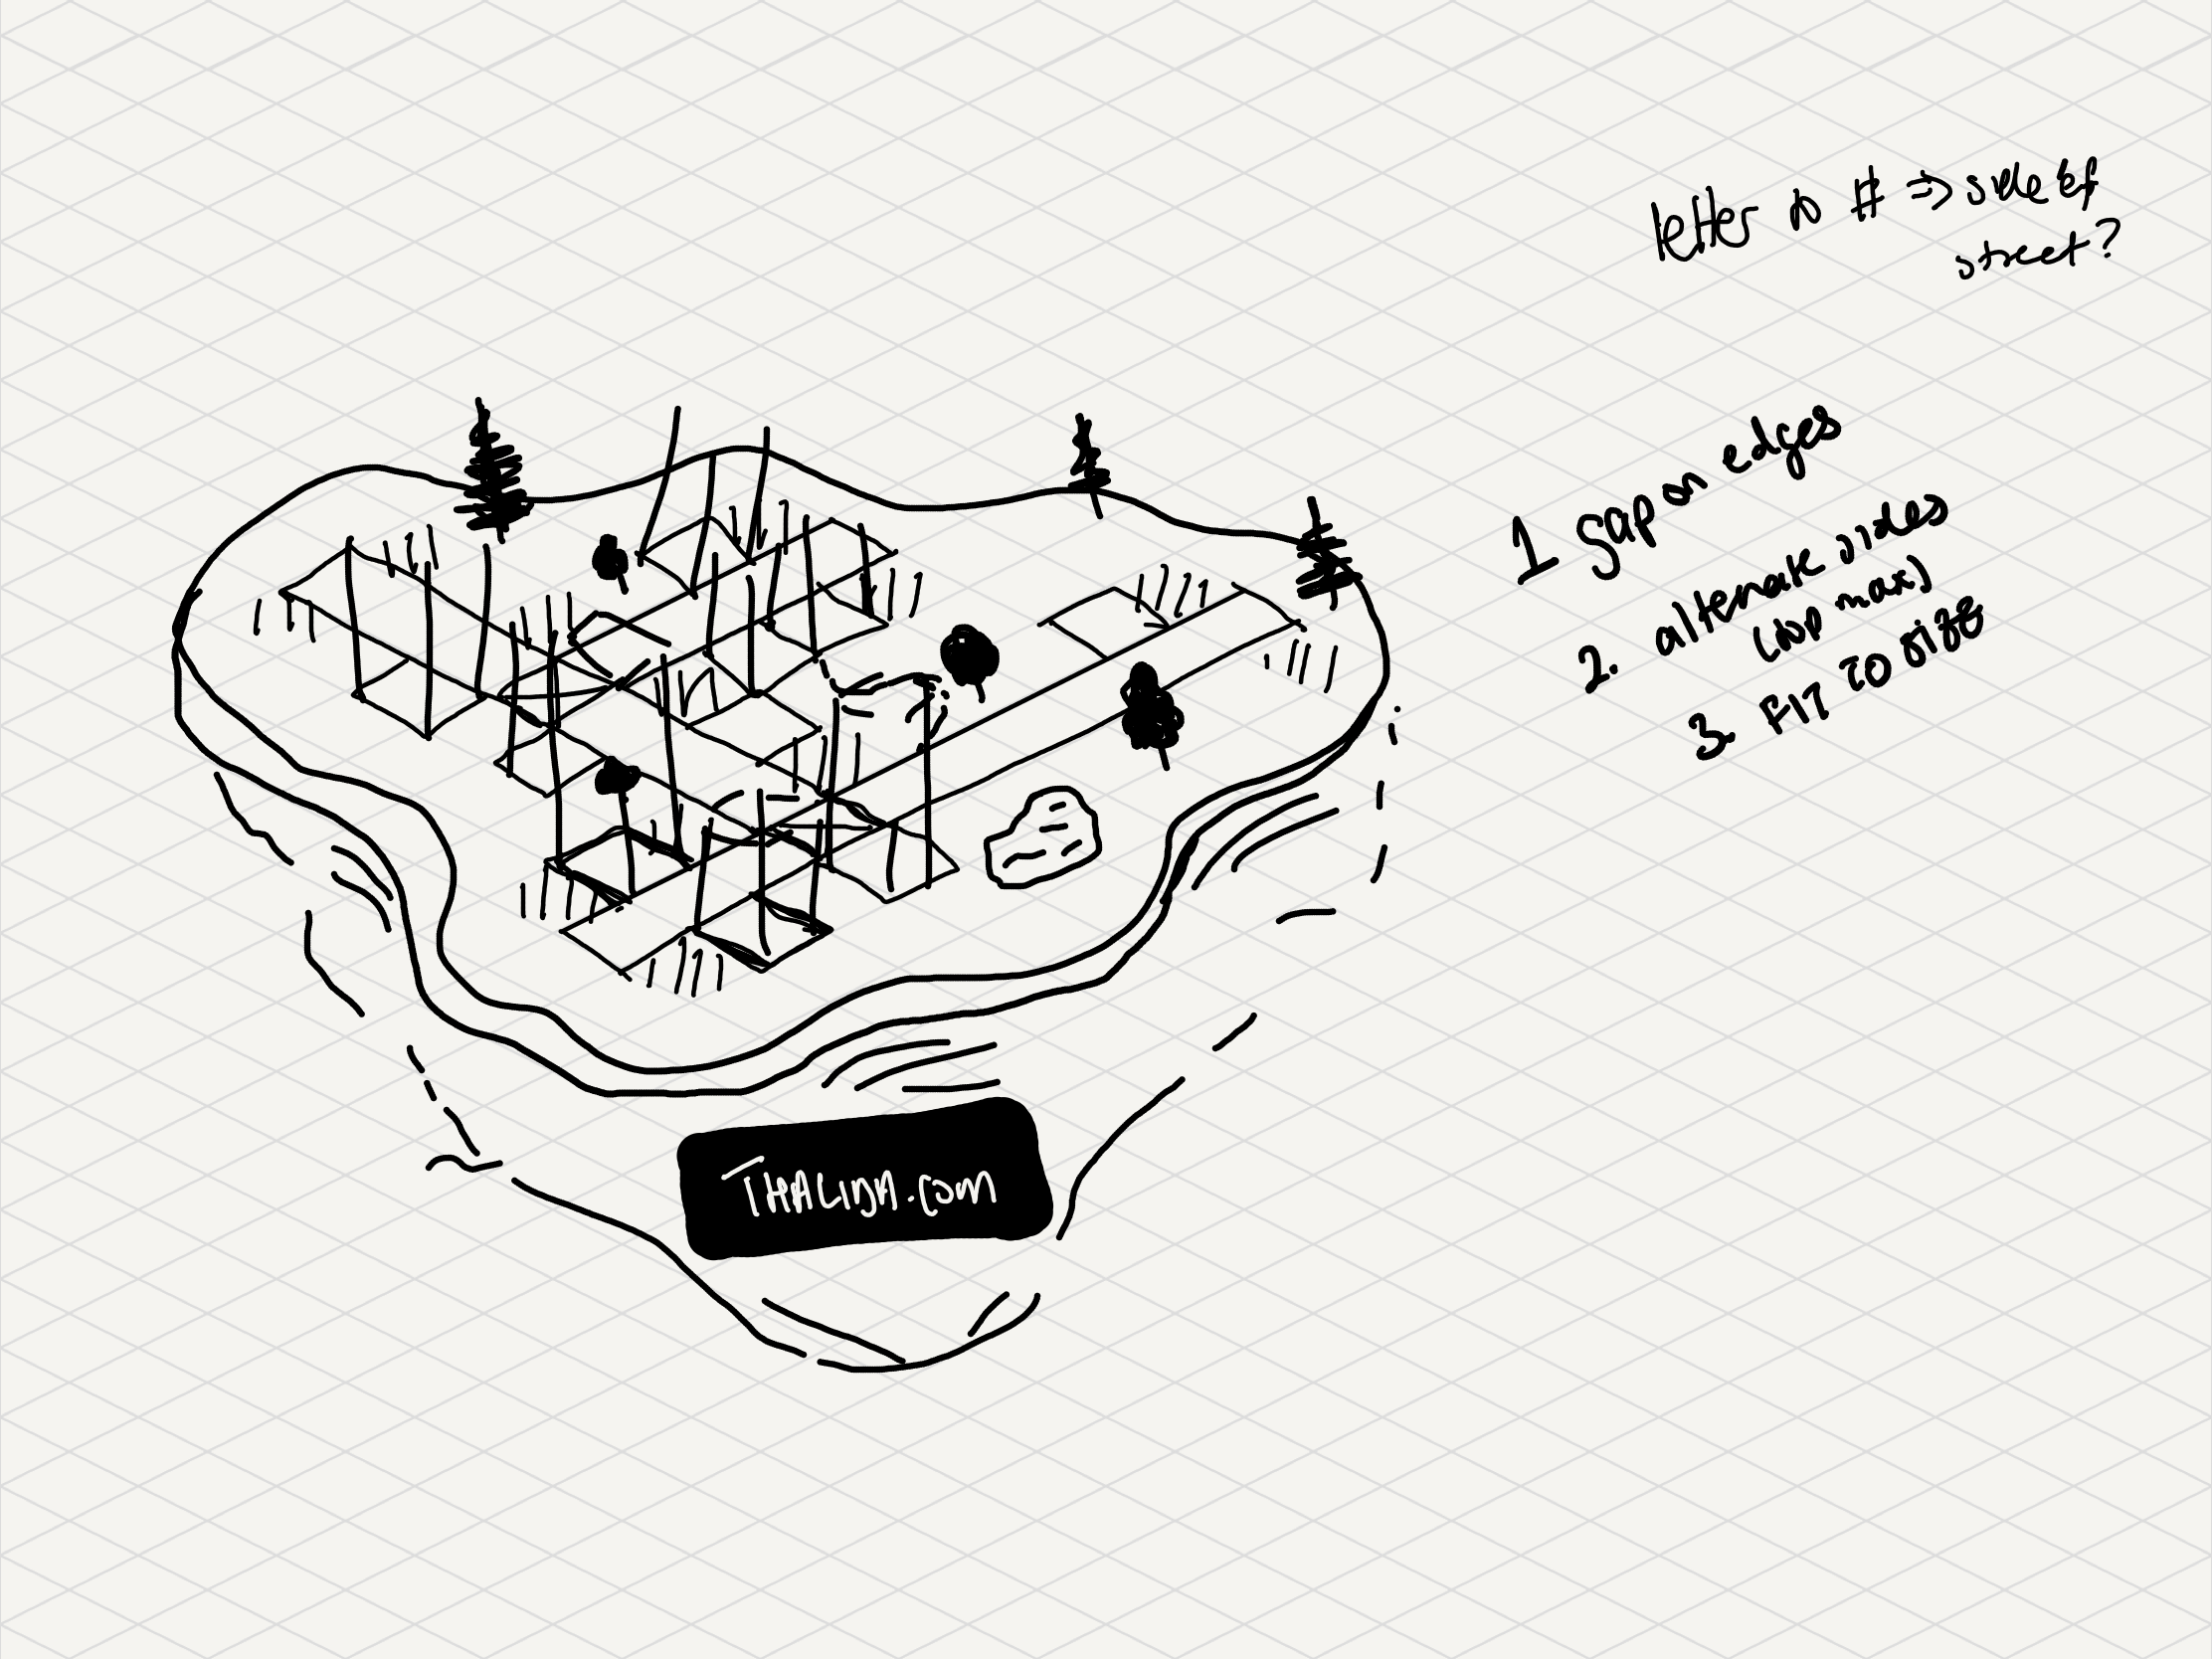 letter to # => side of
street?
1 gap on edges
2. alternate sides
(top max)
3. FIT TO size
THALIDA.com